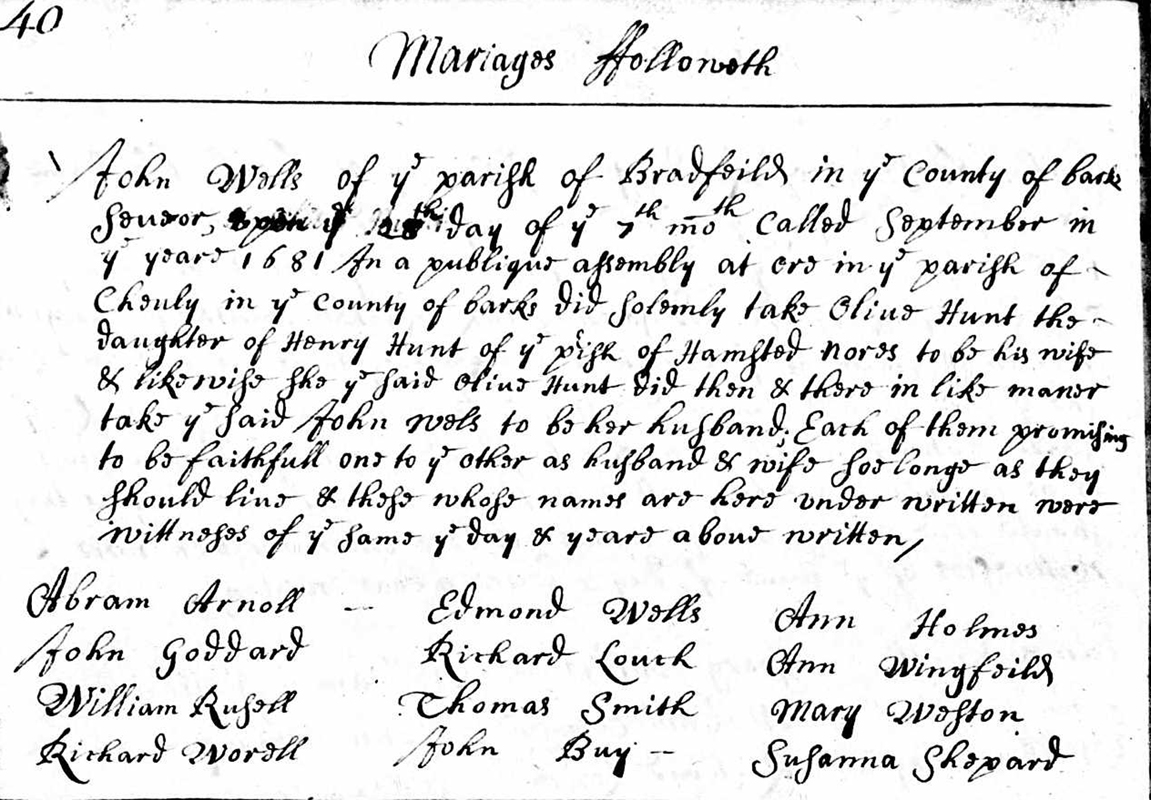 40
Mariages ffolloweth
John Wells of yᵉ parish of Bradfeild in yᵉ County of barks
Seueor, 28th day of yᵉ 7th mo̅th Called September in
yᵉ yeare 1681 In a publique assembly at ore in yᵉ parish of
Cheuly in yᵉ County of barks did solemly take Oliue Hunt the
daughter of Henry Hunt of yᵉ pish of Hamsted Nores to be his wife
& likewise she yᵉ said Oliue Hunt did then & there in like maner
take yᵉ said John Wels to be her husband; Each of them promising
to be faithfull one to yᵉ other as husband & wife soe longe as they
should liue & these whose names are here vnder written were
wittneses of yᵉ same yᵉ day & yeare aboue written,
Abram Arnoll - Edmond Wells Ann Holmes
John Goddard Richard Louch Ann Wingfeild
William Rusell Thomas Smith Mary Weston
Richard Worell John Buy - Susanna Shepard